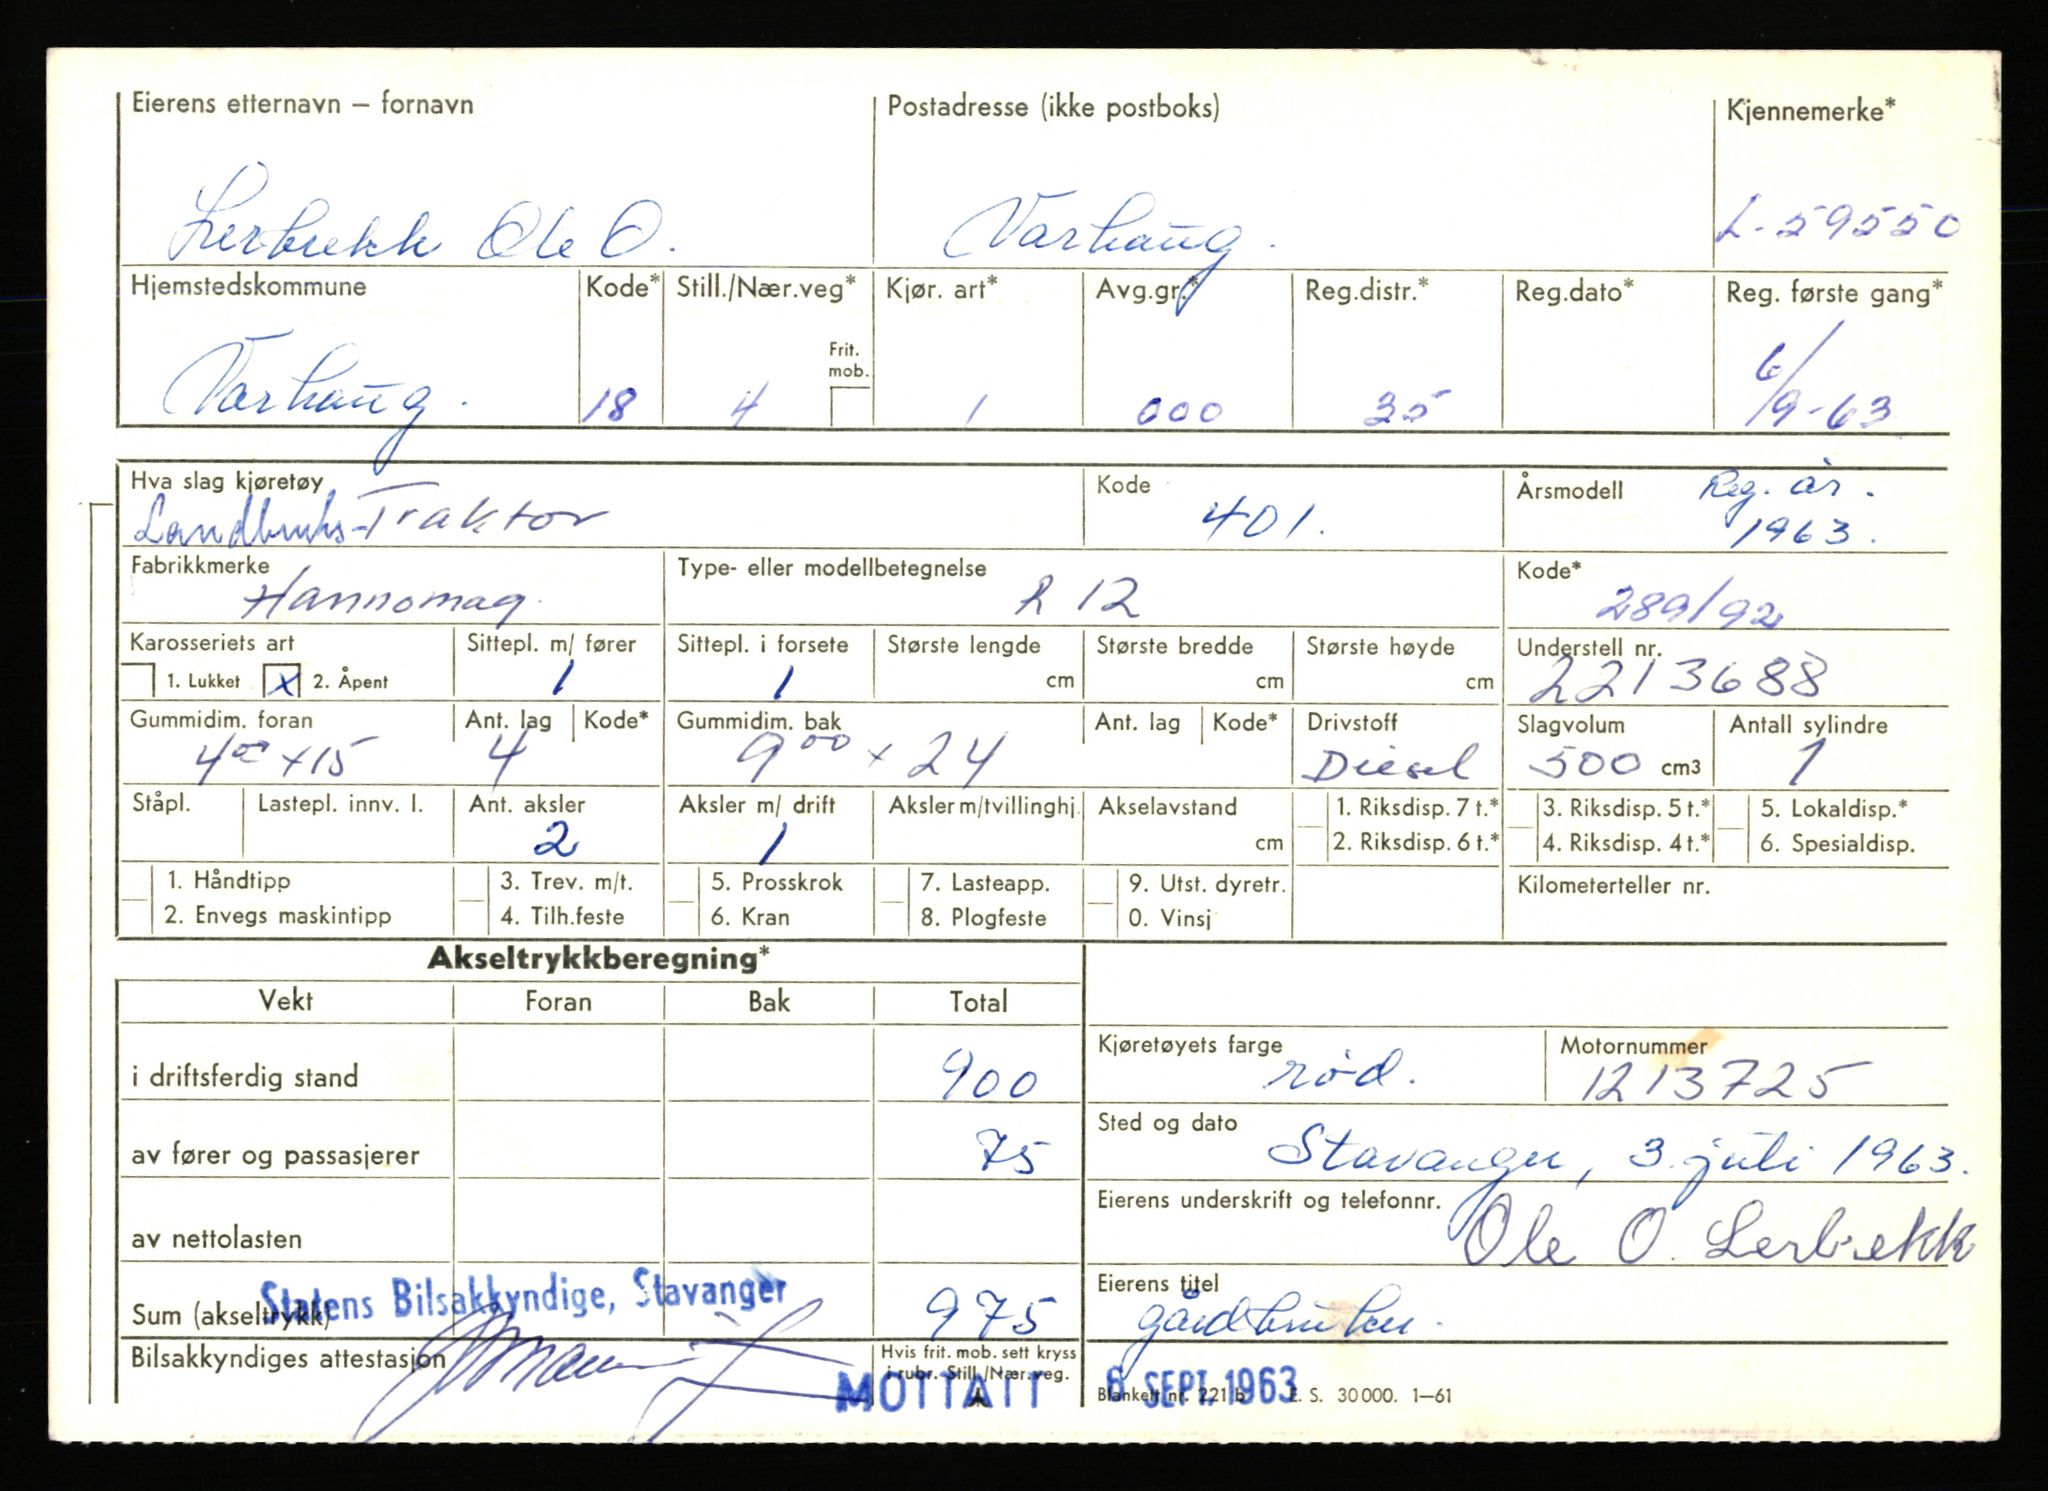 Eierens etternavn – fornavn
Postadresse (ikke postboks)
Kjennemerke*
Lerbrekk Ole O.
Varhaug.
L-59550
Hjemstedskommune
Kode*
Still./Nær.veg*
Kjør. art*
Avg.gr.*
Reg.distr.*
Reg.dato*
Reg. første gang*
Frit.
mob.
Varhaug.
18
4
1
000
35
6/9-63
Hva slag kjøretøy
Kode
Årsmodell
Reg. år.
Landbruks-Traktor
401.
1963.
Fabrikkmerke
Type- eller modellbetegnelse
Kode*
Hannomag
R 12
289/92
Karosseriets art
Sittepl. m/ fører
Sittepl. i forsete
Største lengde
Største bredde
Største høyde
Understell nr.
1. Lukket
X
2. Åpent
1
1
cm
cm
cm
2213688
Gummidim. foran
Ant. lag
Kode*
Gummidim. bak
Ant. lag
Kode*
Drivstoff
Slagvolum
Antall sylindre
4⁰⁰ x 15
4
9⁰⁰ x 24
Diesel
500 cm3
1
Ståpl.
Lastepl. innv. l.
Ant. aksler
Aksler m/ drift
Aksler m/tvillinghj.
Akselavstand
1. Riksdisp. 7 t.*
3. Riksdisp. 5 t.*
5. Lokaldisp.*
2
1
cm
2. Riksdisp. 6 t.*
4. Riksdisp. 4 t.*
6. Spesialdisp.
1. Håndtipp
3. Trev. m/t.
5. Prosskrok
7. Lasteapp.
9. Utst. dyretr.
Kilometerteller nr.
2. Envegs maskintipp
4. Tilh.feste
6. Kran
8. Plogfeste
0. Vinsj
Akseltrykkberegning*
Vekt
Foran
Bak
Total
i driftsferdig stand
900
Kjøretøyets farge
rød.
Motornummer
1213725
av fører og passasjerer
75
Sted og dato
Stavanger, 3. juli 1963.
av nettolasten
Eierens underskrift og telefonnr.
Ole O. Lerbrekk
Statens Bilsakkyndige, Stavanger
Sum (akseltrykk)
975
Eierens titel
gårdbruker.
Bilsakkyndiges attestasjon
Hvis frit. mob. sett kryss
i rubr. Still./Nær.veg.
MOTTATT
6 SEPT. 1963
Blankett nr. 221 b
E. S. 30 000. 1–61